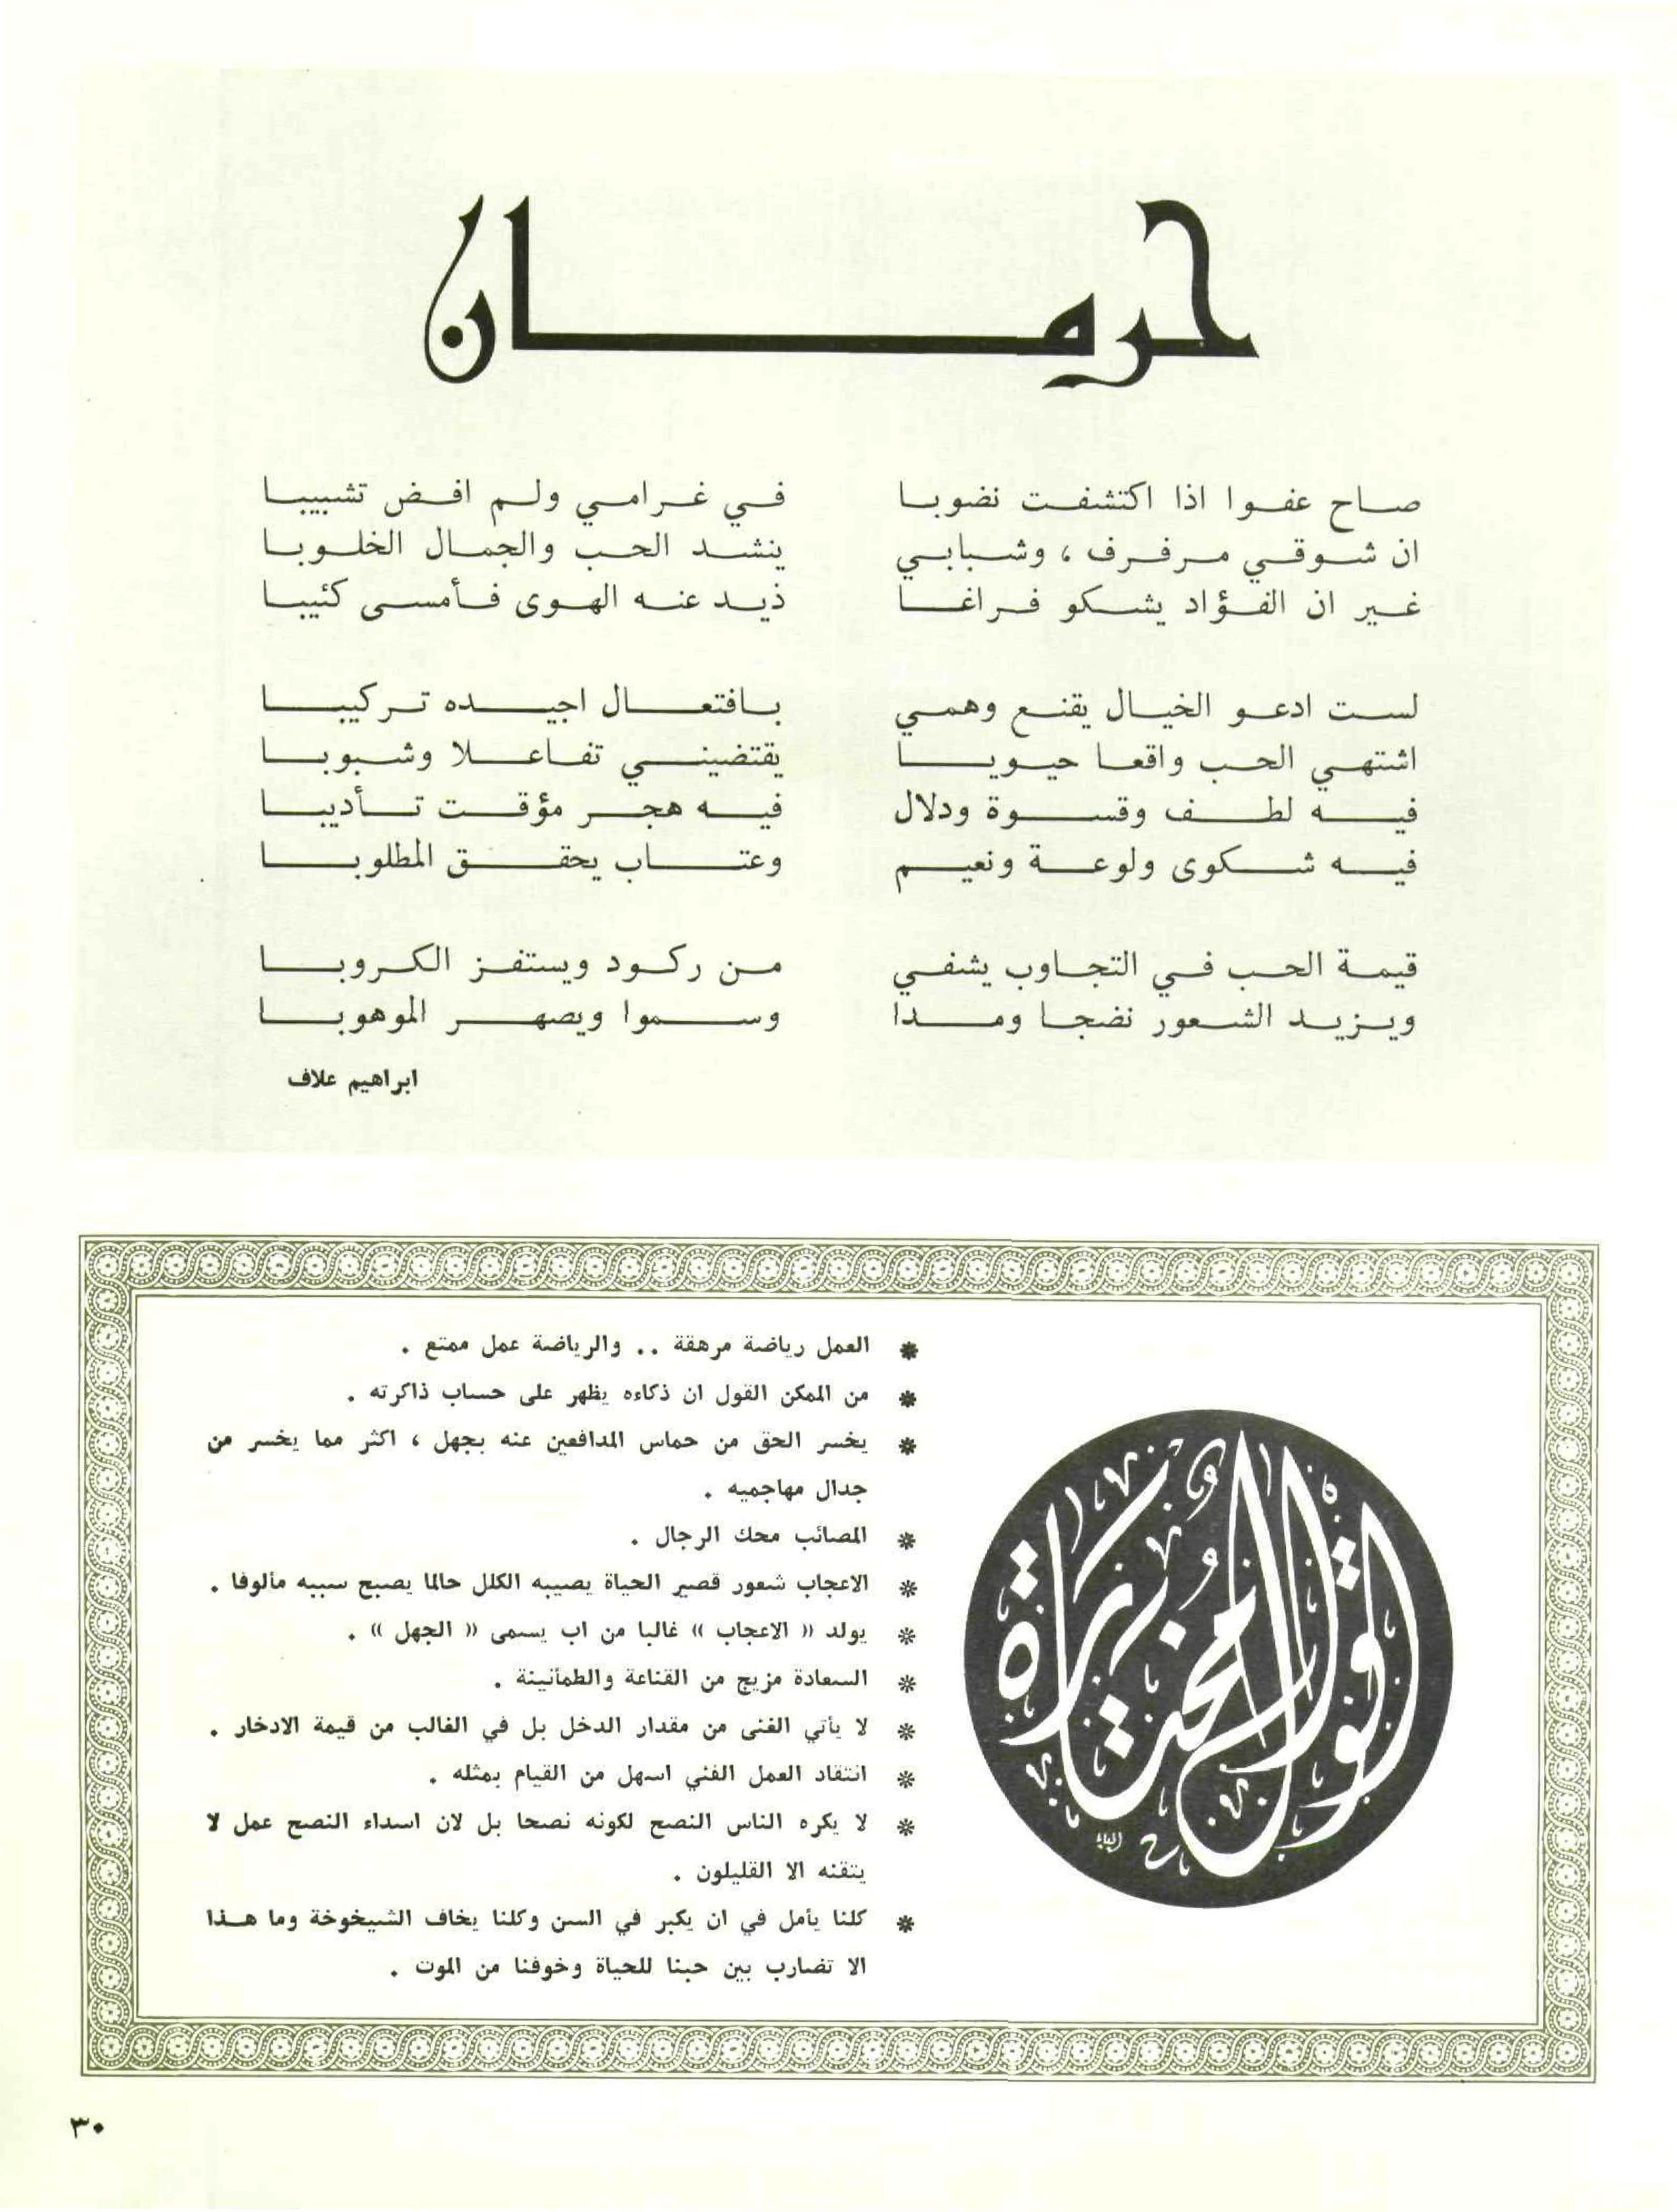 حرمان
صاح عفوا اذا اكتشفت نضوبا في غرامي ولم افض تشبيبا
ان شوقي مرفرف ، وشبابي ينشد الحب والجمال الخلوبا
غير ان الفؤاد يشكو فراغا ذيد عنه الهوى فأمسى كئيبا
لست ادعو الخيال يقنع وهمي بافتعال اجيده تركيبا
اشتهي الحب واقعا حيويا يقتضيني تفاعلا وشبوبا
فيه لطف وقسوة ودلال فيه هجر مؤقت تأديبا
فيه شكوى ولوعة ونعيم وعتاب يحقق المطلوبا
قيمة الحب في التجاوب يشفي من ركود ويستفز الكروبا
ويزيد الشعور نضجا ومدا وسموا ويصهر الموهوبا
ابراهيم علاف
اقوال مختارة
* العمل رياضة مرهقة .. والرياضة عمل ممتع .
* من الممكن القول ان ذكاءه يظهر على حساب ذاكرته .
* يخسر الحق من حماس المدافعين عنه بجهل ، اكثر مما يخسر من
جدال مهاجميه .
* المصائب محك الرجال .
* الاعجاب شعور قصير الحياة يصيبه الكلل حالما يصبح سببه مألوفا .
* يولد « الاعجاب » غالبا من اب يسمى « الجهل » .
* السعادة مزيج من القناعة والطمأنينة .
* لا يأتي الغنى من مقدار الدخل بل في الغالب من قيمة الادخار .
* انتقاد العمل الفني اسهل من القيام بمثله .
* لا يكره الناس النصح لكونه نصحا بل لان اسداء النصح عمل لا
يتقنه الا القليلون .
* كلنا يأمل في ان يكبر في السن وكلنا يخاف الشيخوخة وما هذا
الا تضارب بين حبنا للحياة وخوفنا من الموت .
٣٠